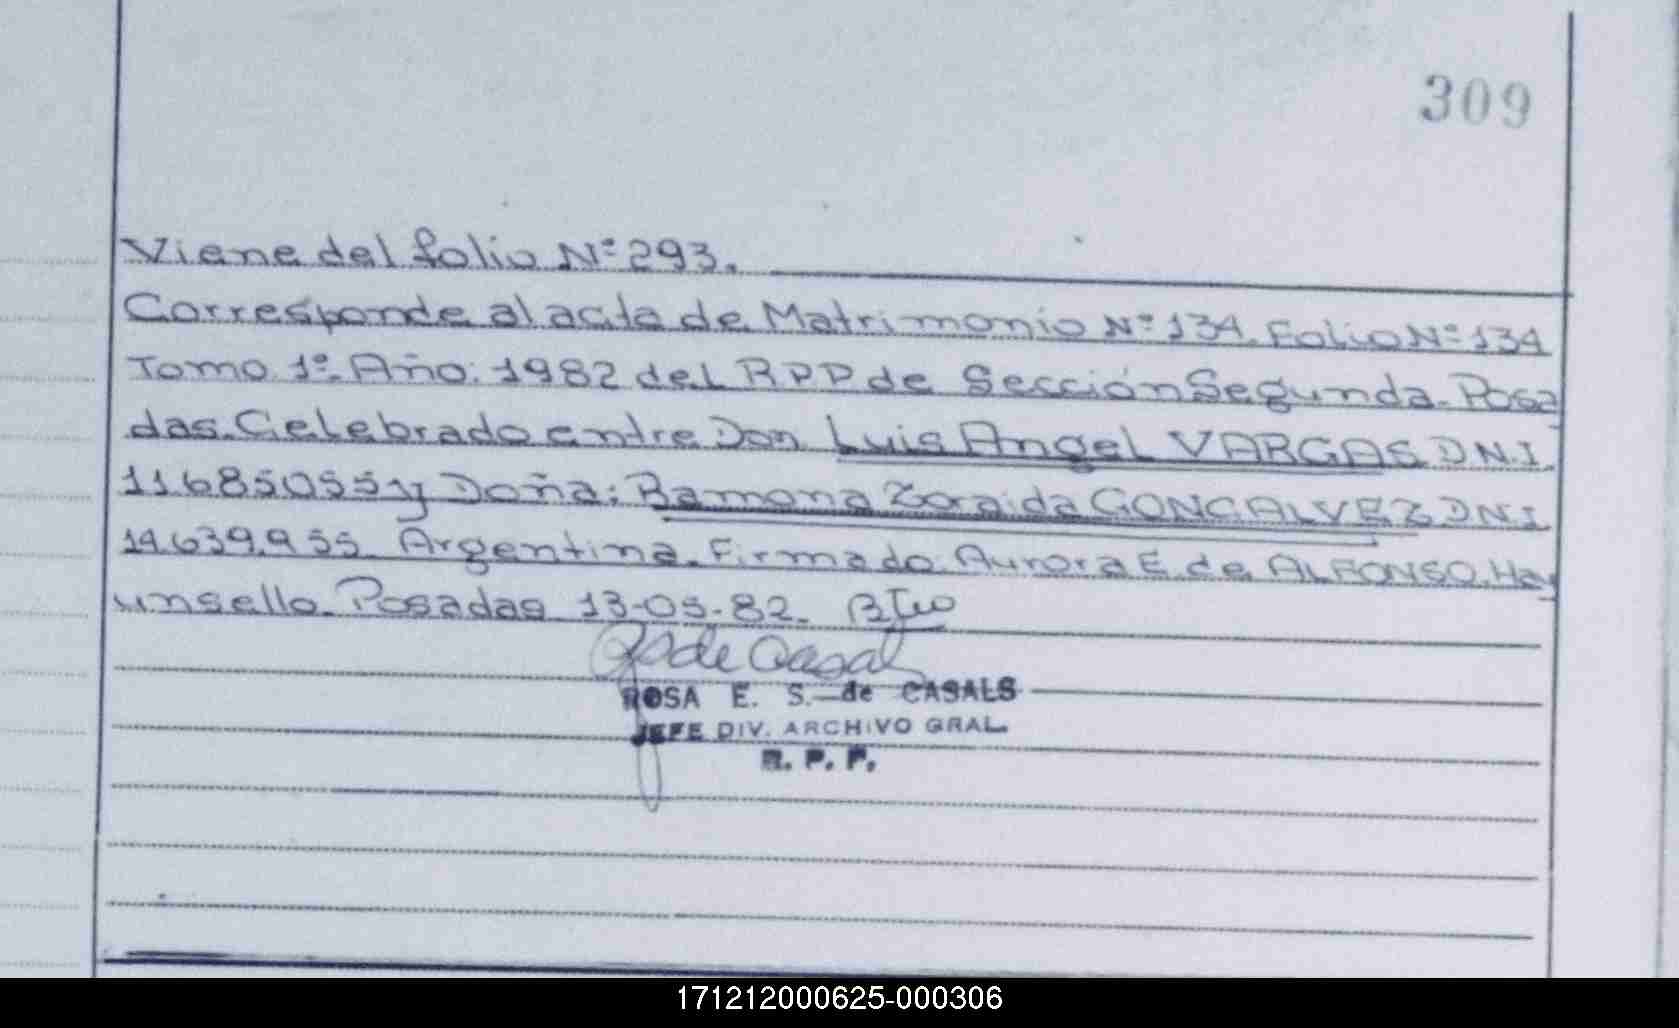 309
Viene del folio Nº 293.
Corresponde al acta de Matrimonio Nº 134. Folio Nº 134
Tomo 1º. Año: 1982 del RPP de Sección Segunda. Posa
das. Celebrado entre Don Luis Angel VARGAS D.N.I.
11.685055 y Doña: Ramona Zoraida GONCALVEZ DNI
14.639.955 Argentina. Firmado Aurora E. de ALFONSO. Hay
un sello. Posadas 13-05-82.
de Casals
ROSA E. S. de CASALS
JEFE DIV. ARCHIVO GRAL.
R. P. P.
171212000625-000306